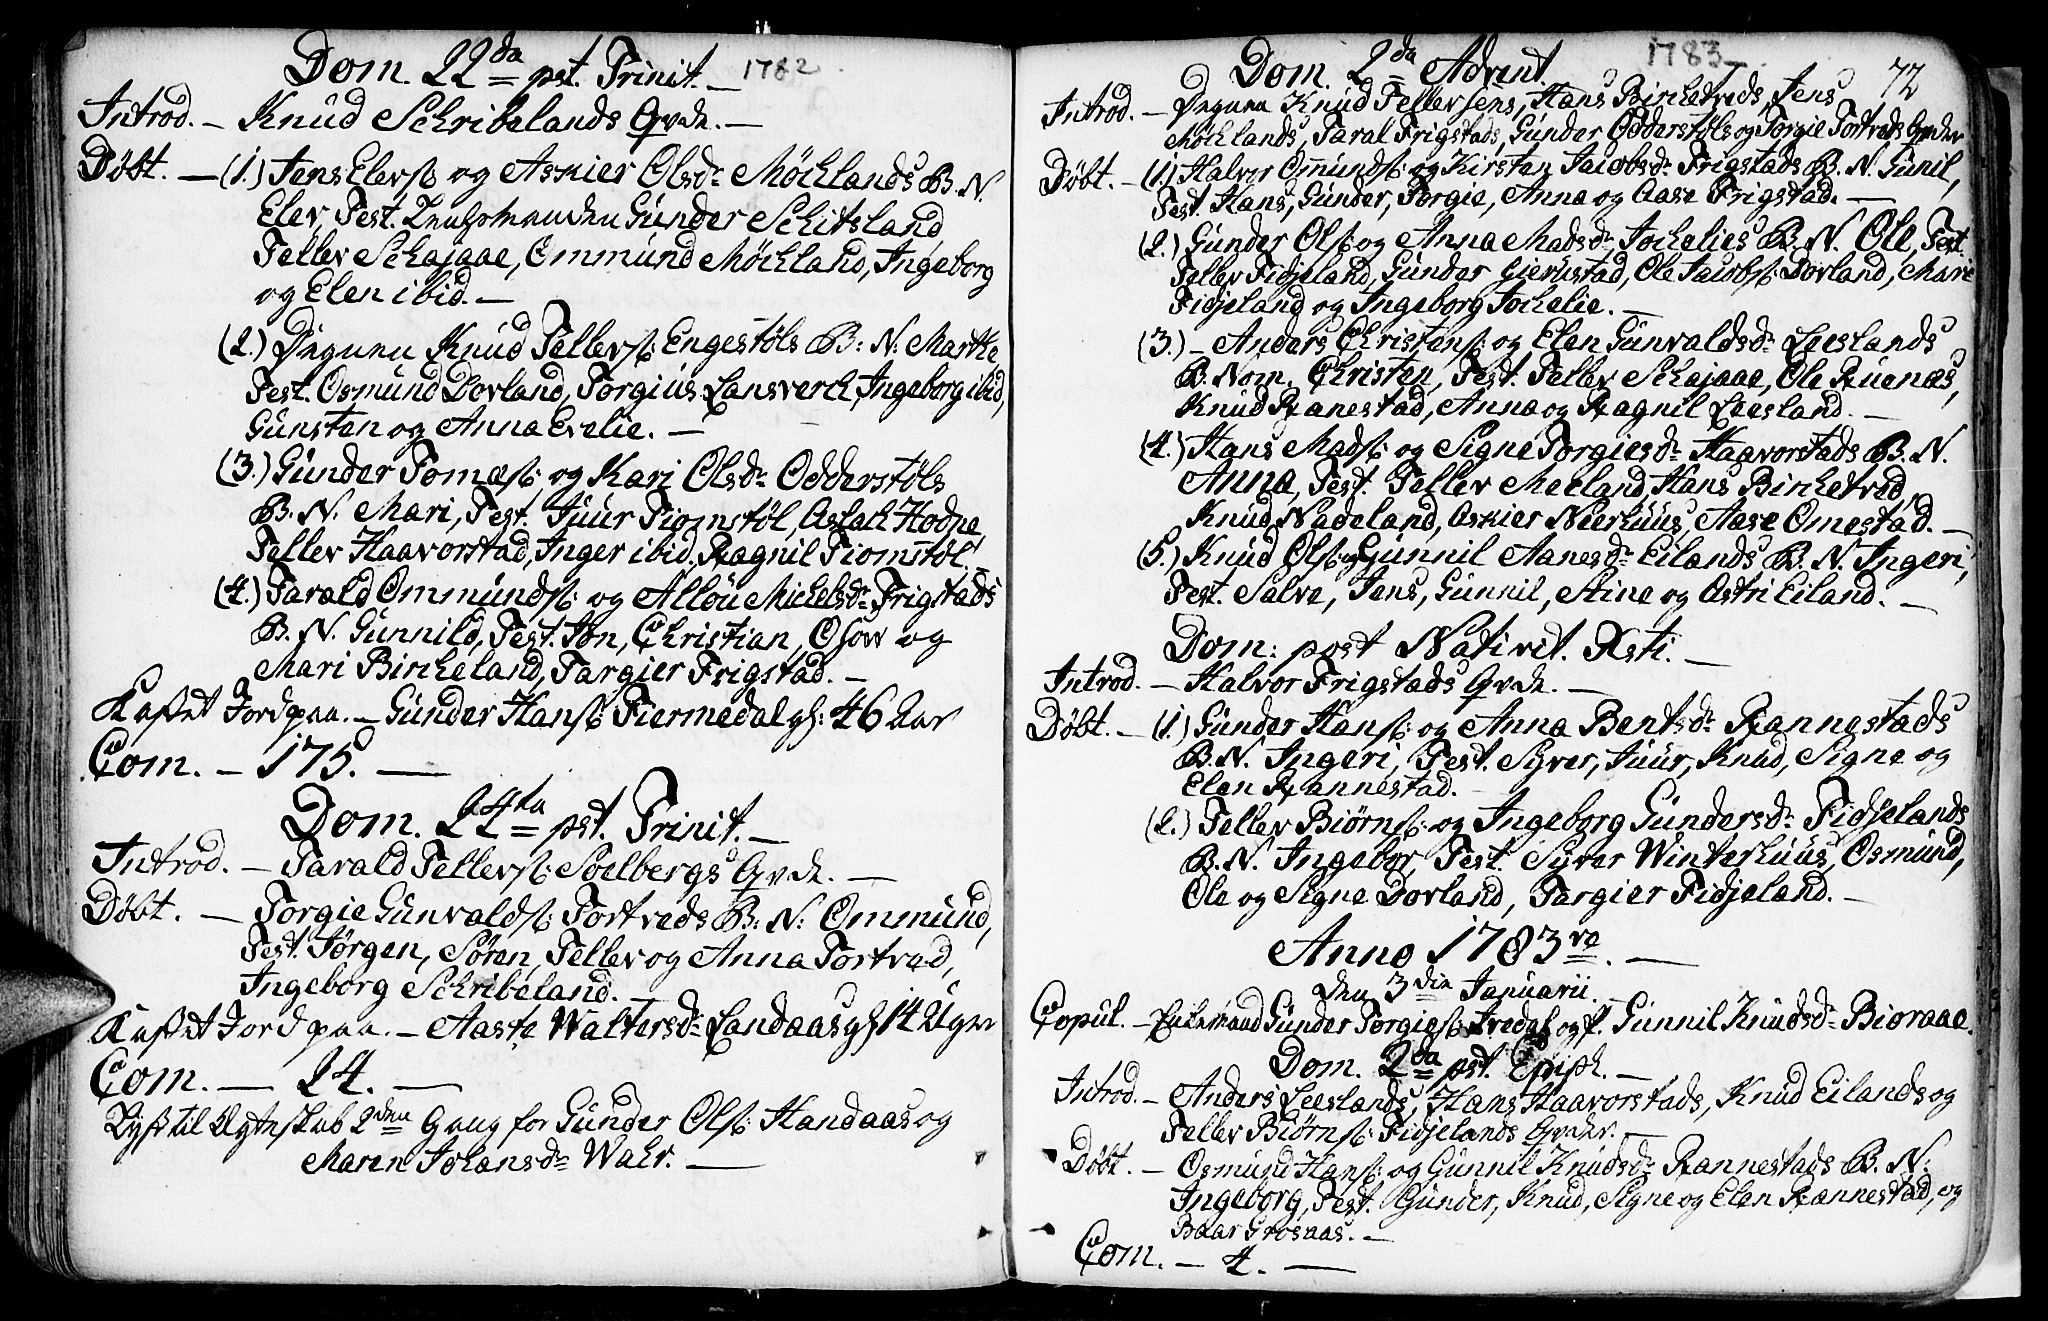 Dom. 22da pst. Trinit. 1782
Introd. – Knud Schribelands Qvde. –
Döbt. – (1.) Jens Elevsß og Askier Olsdr Möchlands B. N.
Elev, Test. Gunder Schitsland
Tellev Schajaae, Ommund Möchland, Ingeborg
og Elen ibid. –
(2.) Knud Tellevsß: Engestöls B: N: Marthe
Test. Osmund Dovland, Torgius Lansverch, Ingeborg ibid,
Gunsten og Anna Evelie. –
(3.) Gunder Tomæsß: og Kari Olsdr Odderstöls
B. N. Mari, Test. Juur Fiomstöl, Aslach Hodne,
Tellev Haavorstad, Inger ibid. Ragnil Fiomstöl. –
(4.) Tarald Ommundsß: og Allou Michelsdr Frigstads
B. N. Gunnild, Test. Jon, Christian, Osow og
Mari Bircheland, Targier Frigstad. –
Kastet Jord paa. – Gunder Hansß Fiermedal gl: 46 Aar
Com. – 175. –
Dom. 24ta pst. Trinit. –
Introd. – Tarald Tellevsß: Soelbergs Qvde. –
Döbt. – Torgie Gunvaldsß: Tortveds B: N: Ommund,
Test. Jörgen, Sören, Tellev og Anna Tortved,
Ingeborg Schribeland. –
Kastet Jord paa. – Aaste Waltersdr Landaas gl 14 Uger
Com. – 24. –
Lyst til Ægteskab 2den Gang for Gunder Olsß: Handaas og
Maren Johansdr Wahr. –
Dom. 2da Advent. 1783 – 72
Introd. – Knud Tellevsens, Hans Birchetveds, Jens
Möchlands, Taral Frigstads, Gunder Odderstöls og Torgie Tortveds Qvder
Döbt. – (1.) Halvor Omundsß: og Kirsten Jacobsdr Frigstads B. N. Gunil,
Test. Hans, Gunder, Torgie, Anna og Aase Frigstad. –
(2.) Gunder Olsß og Anna Madsdr Jochelies B. N. Ole, Test.
Tellev Fidjeland, Gunder Gierustad, Ole Jacobsß Dovland, Mari
Fidjeland og Ingeborg Jochelie. –
(3.) – Anders Christensß: og Elen Gunvaldsdr Leeslands
B. Nom. Christen, Test. Tellev Schajaae, Ole Ruenæs,
Knud Ranestad, Anna og Ragnil Leesland. –
(4.) Hans Madsß og Signe Torgiesdr Haavorstads B. N.
Anna, Test. Tellev Meeland, Hans Birchetved,
Knud Nadeland, Askier Neerhuus, Aase Omestad. –
(5.) Knud Olsß og Gunnil Aanesdr Eilands B. N. Ingeri,
Test. Salve, Jens, Gunnil, Stine og Astri Eiland. –
Dom: post Nativit. Xsti. –
Introd. – Halvor Frigstads Qvde. –
Döbt. – (1.) Gunder Hansß: og Anna Bentsdr Rannestads
B. N. Ingeri, Test. Syver, Juur, Knud, Signe og
Elen Rannestad. –
(2.) Tellev Biörnsß: og Ingeborg Gundersdr Fidjelands
B. N. Ingebor, Test. Syver Winterhuus, Osmund,
Ole og Signe Dovland, Targier Fidjeland. –
Anno 1783re. –
Den 3die Januarii.
Copul. – Gunder Torgiesß Iredal og p. Gunnil Knudsdr Bioraae.
Dom. 2da pst. Epiph. –
Introd. – Anders Leeslands, Hans Haavorstads, Knud Eilands og
Tellev Biörnsß: Fidjelands Qvder. –
Döbt. – Osmund Hansß: og Gunnil Knudsdr Rannestads B. N:
Ingeborg, Test. Gunder, Knud, Signe og Elen Rannestad, og
Baar Grosaas. –
Com. – 4. –